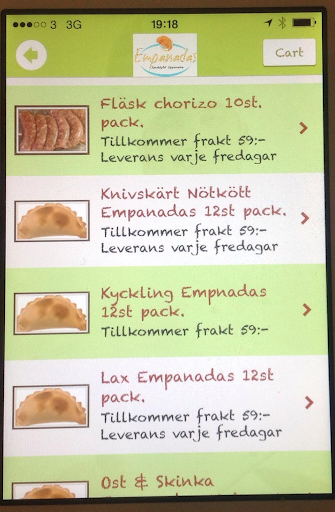 3 3G 19:18
Empanadas
Cart
Fläsk chorizo 10st.
pack.
Tillkommer frakt 59:-
Leverans varje fredagar
Knivskärt Nötkött
Empanadas 12st pack.
Tillkommer frakt 59:-
Leverans varje fredagar
Kyckling Empnadas
12st pack.
Tillkommer frakt 59:-
Lax Empanadas 12st
pack.
Tillkommer frakt 59:-
Leverans varje fredagar
Ost & Skinka